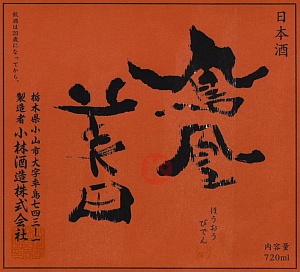 日本酒
鳳凰
美田
ほうおう
びでん
内容量
720ml
飲酒は20歳になってから。
栃木県小山市大字卒島七四三-一
製造者 小林酒造株式会社